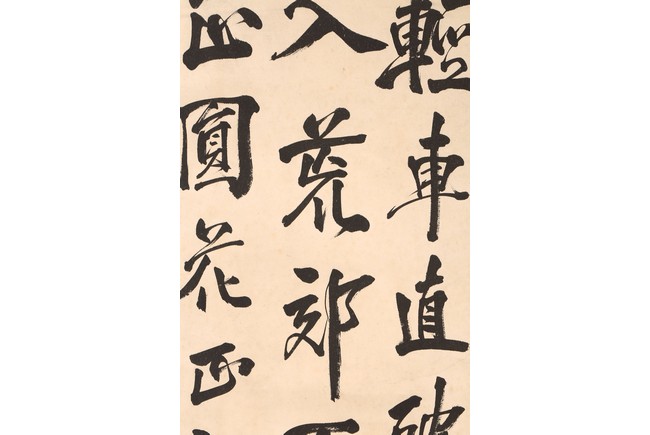 輕車直破
入荒郊
正圓花正